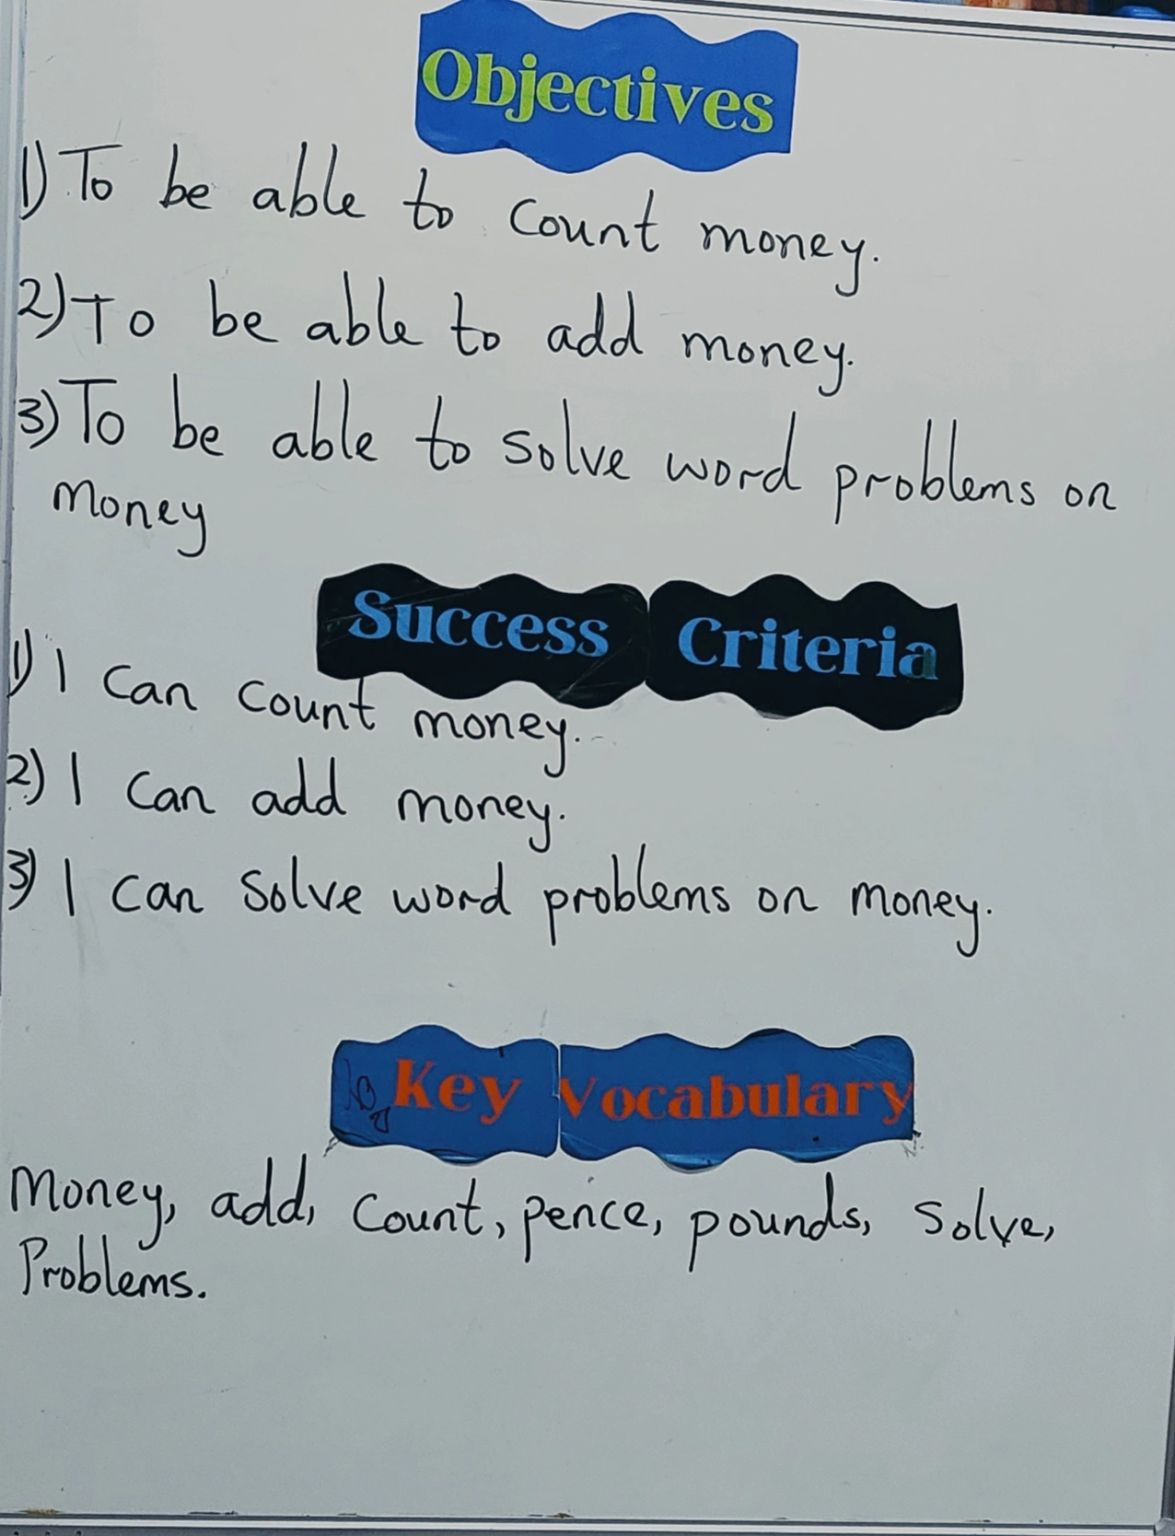 Objectives
1) To be able to count money.
2) To be able to add money.
3) To be able to solve word problems on
money
Success Criteria
1) I can count money.
2) I can add money.
3) I can solve word problems on money.
Key Vocabulary
Money, add, count, pence, pounds, solve,
Problems.